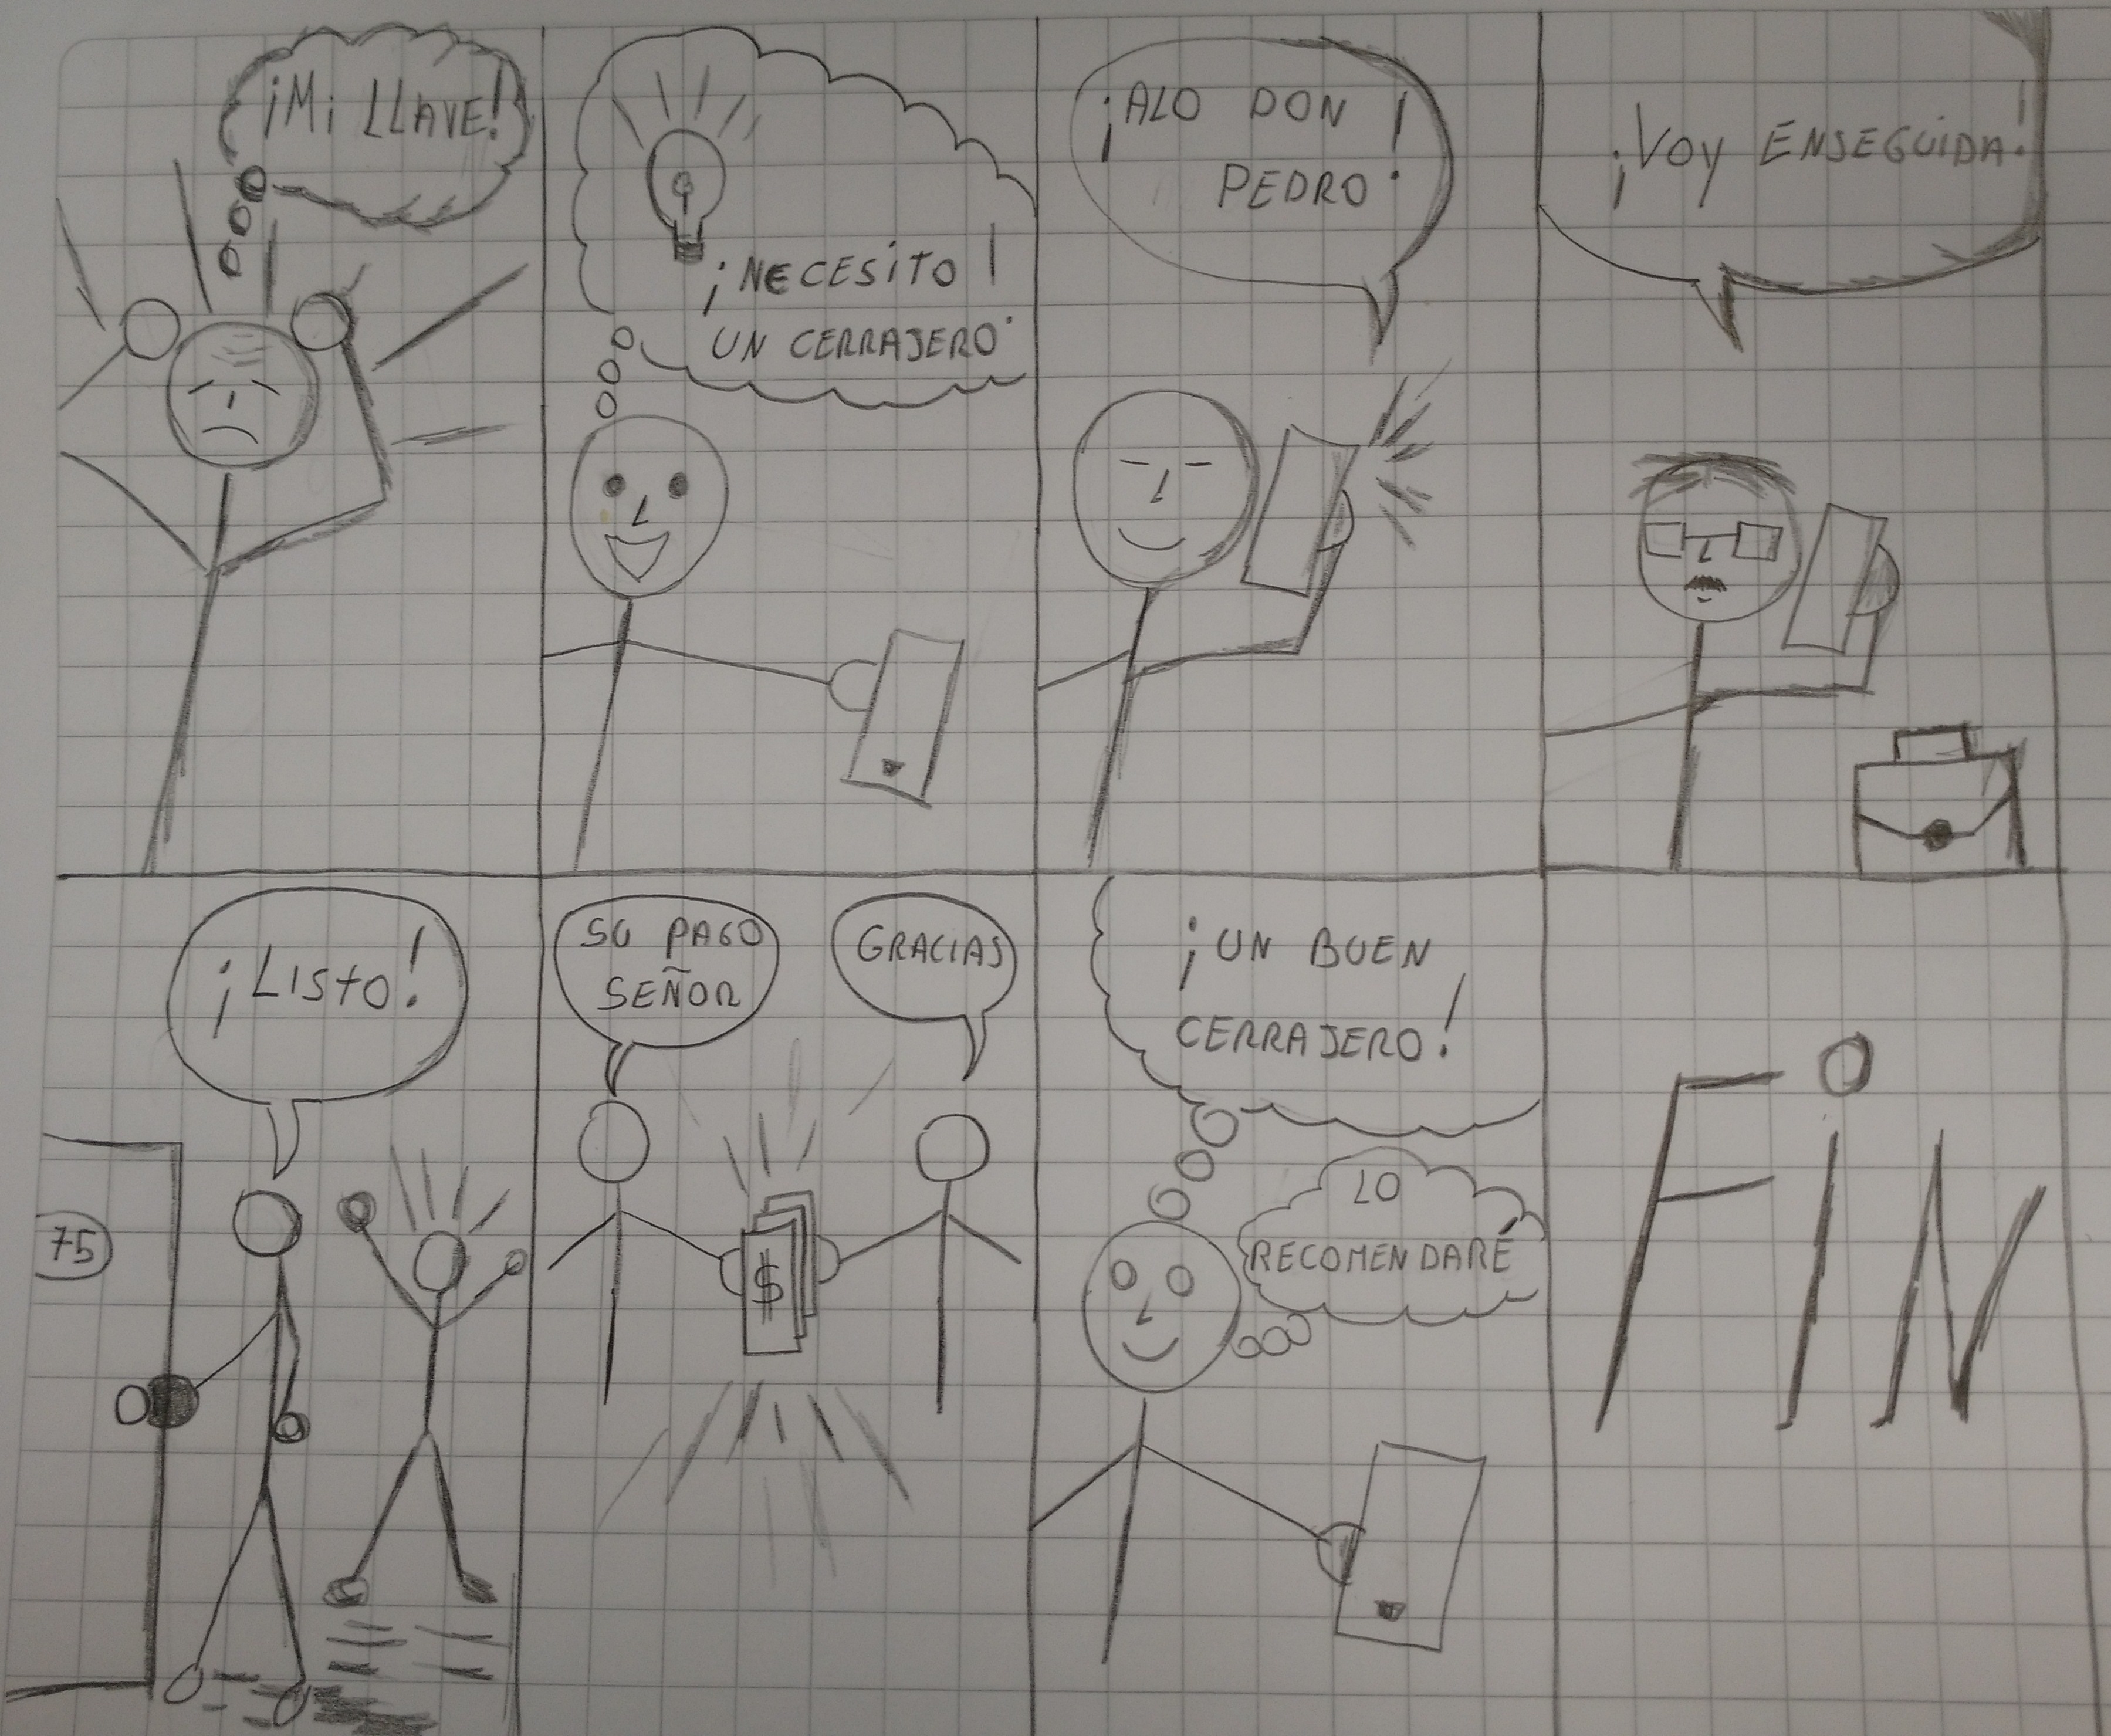 ¡Mi LLAVE!
¡NECESiTO!
UN CERRAJERO
¡ALO DON
PEDRO!
¡Voy ENSEGUiDA!
¡Listo!
75
SU PAGO
SEÑOR
GRACIAS
$
¡UN BUEN
CERRAJERO!
LO
RECOMENDARÉ
FiN